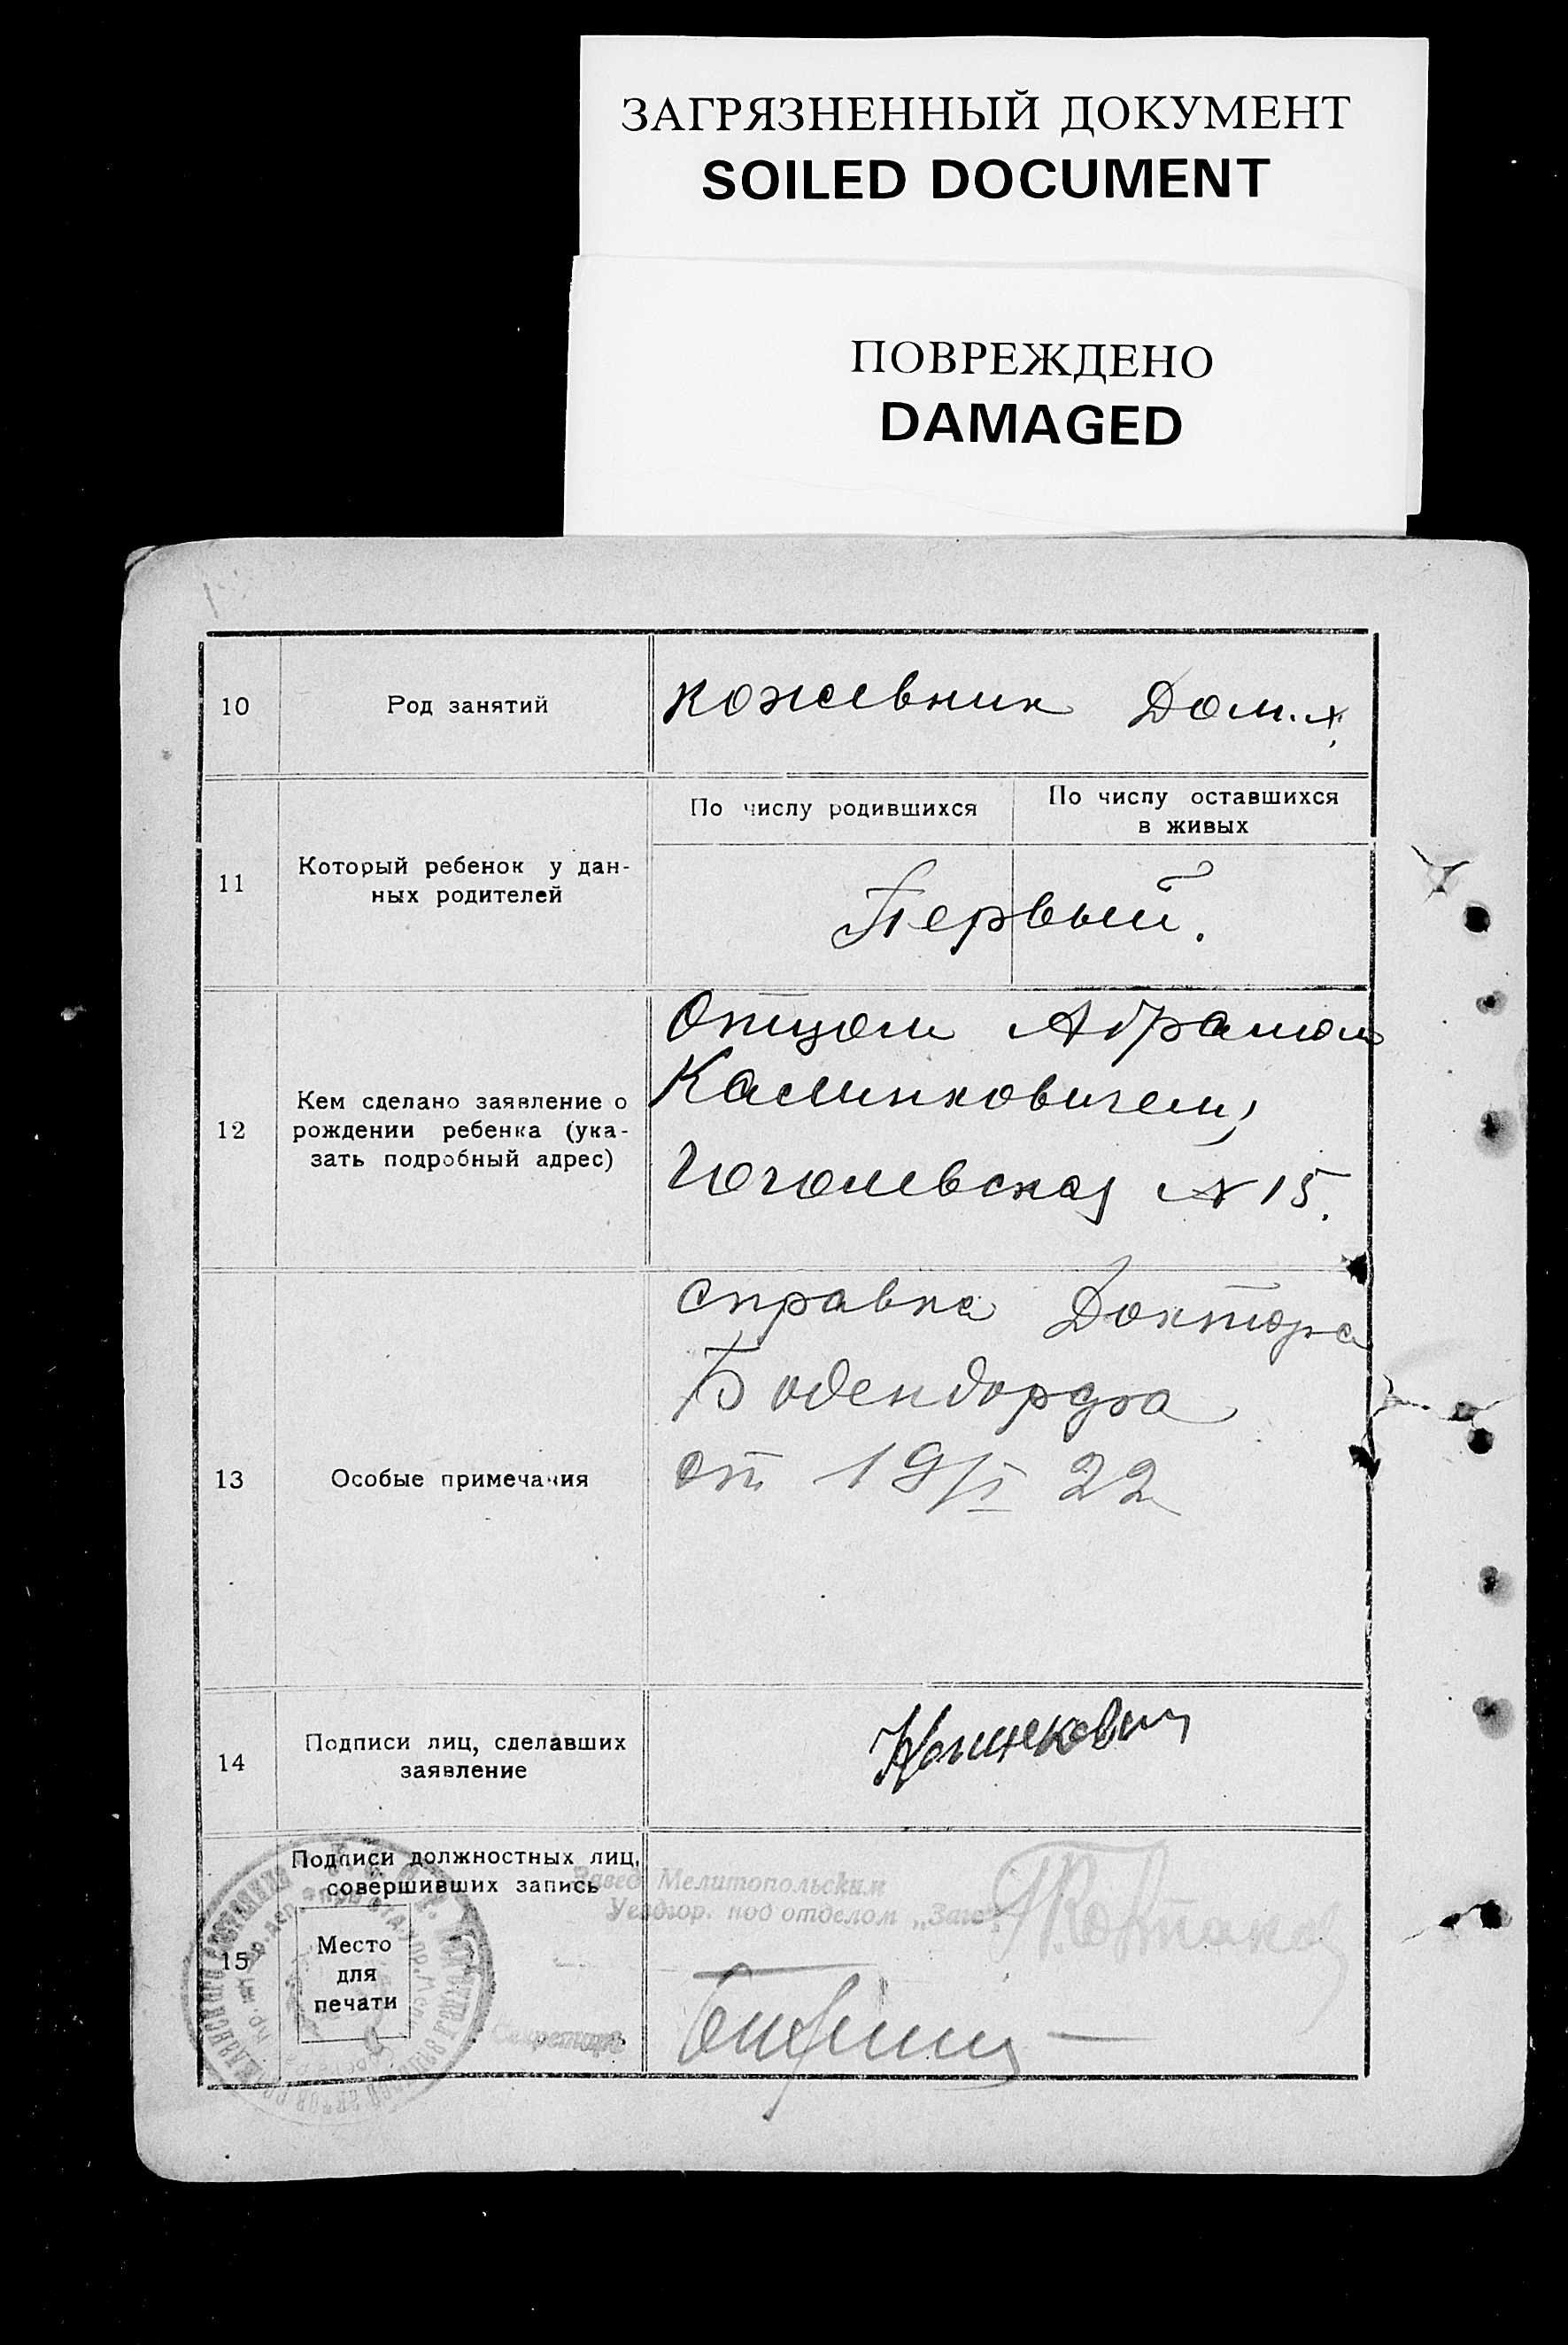 ЗАГРЯЗНЕННЫЙ ДОКУМЕНТ
SOILED DOCUMENT
ПОВРЕЖДЕНО
DAMAGED
10 Род занятий кожевник Дом. х.
По числу родившихся По числу оставшихся
в живых
11 Который ребенок у дан-
ных родителей
Первый.
Отцом Абрамом
Калинковичем,
12 Кем сделано заявление о
рождении ребенка (ука-
зать подробный адрес)
Гоголевская № 15.
справка Доктора
Бодендорфа
от 19/I 22
13 Особые примечания
14 Подписи лиц, сделавших
заявление
Калинкович
Подписи должностных лиц,
совершивших запись
Завед. Мелитопольским
Уездгор. под отделом „Загс"
15
Место
для
печати
Секретарь